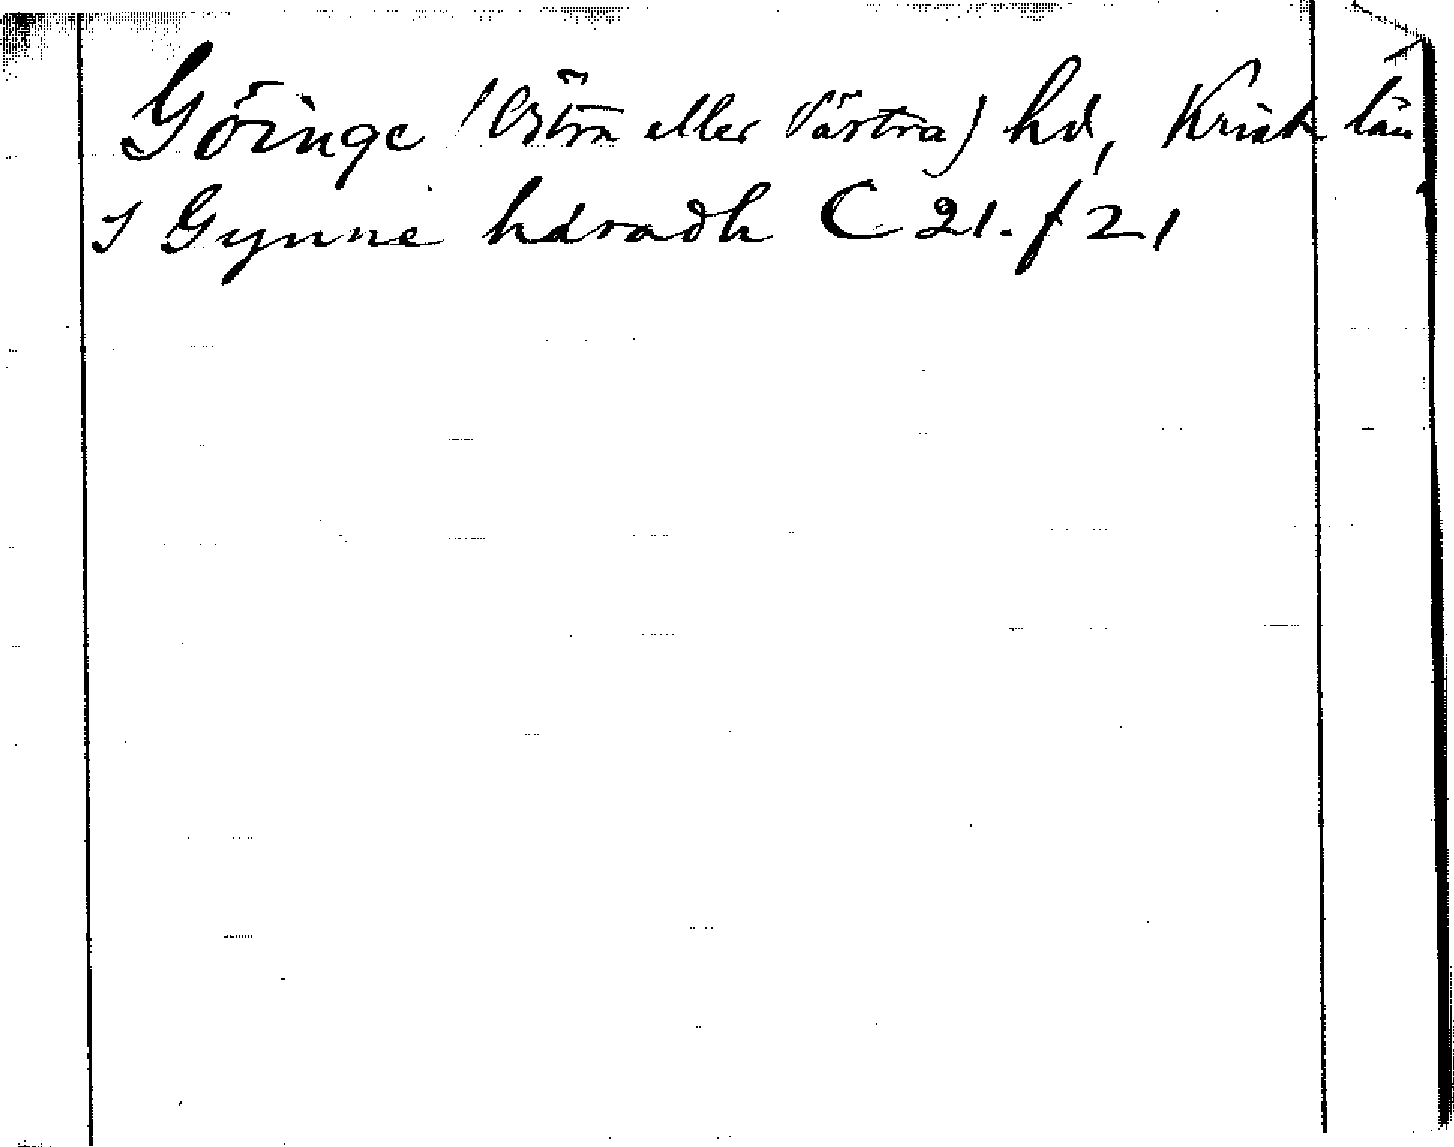 Göinge (Östra eller Västra) hd, Krist län
I Gynne håradh C 21. f 21